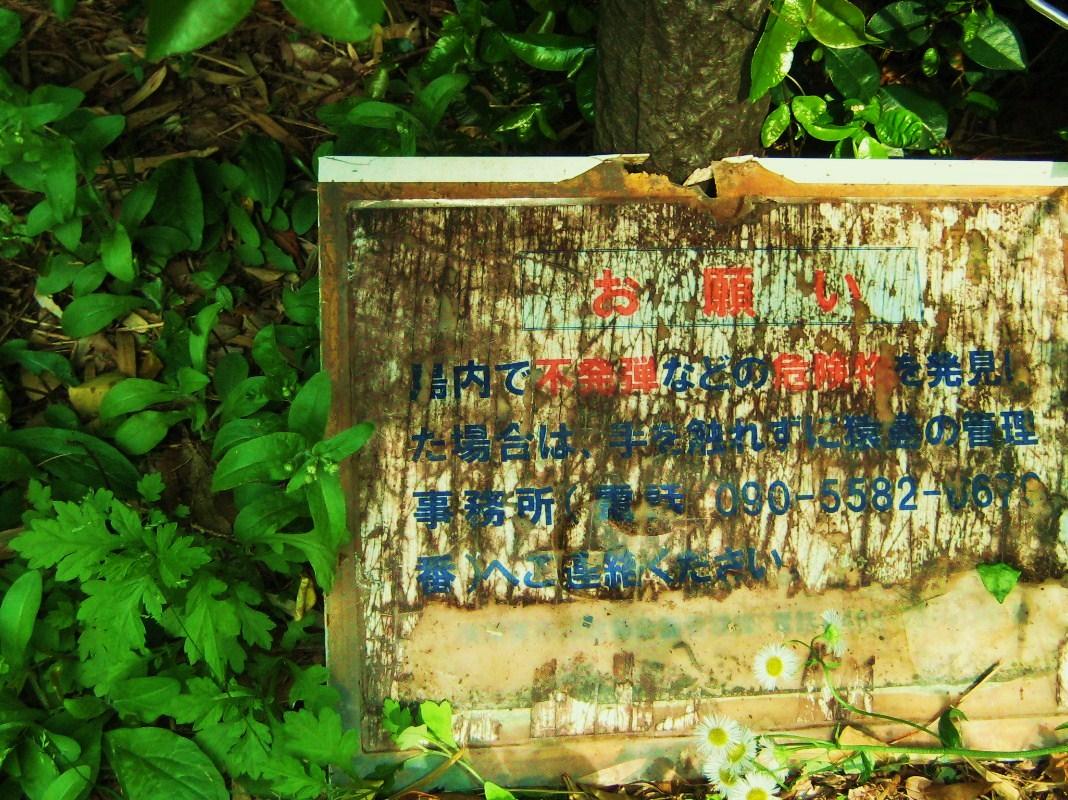 お願い
場内で不発弾などの危険物を発見し
た場合は、手を触れずに猿島の管理
事務所(電話 090-5582-
番)へご連絡ください